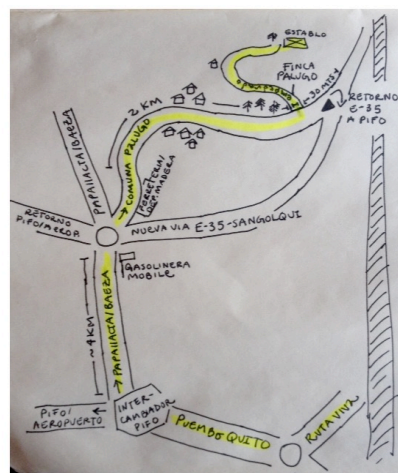 ESTABLO
FINCA
PALUGO
30 MTS
RETORNO
E-35
A PIFO
2 KM
COMUNA PALUGO
PAPALLACTA/BAEZA
FERRETERIA/
RETORNO
PIFO/AEROP.
NUEVA VIA E-35-SANGOLQUI
GASOLINERA
MOBILE
~4KM
PAPALLACTA/BAEZA
PIFO/
AEROPUERTO
INTER-
CAMBIADOR
PIFO
PUEMBO QUITO
RUTA VIVA